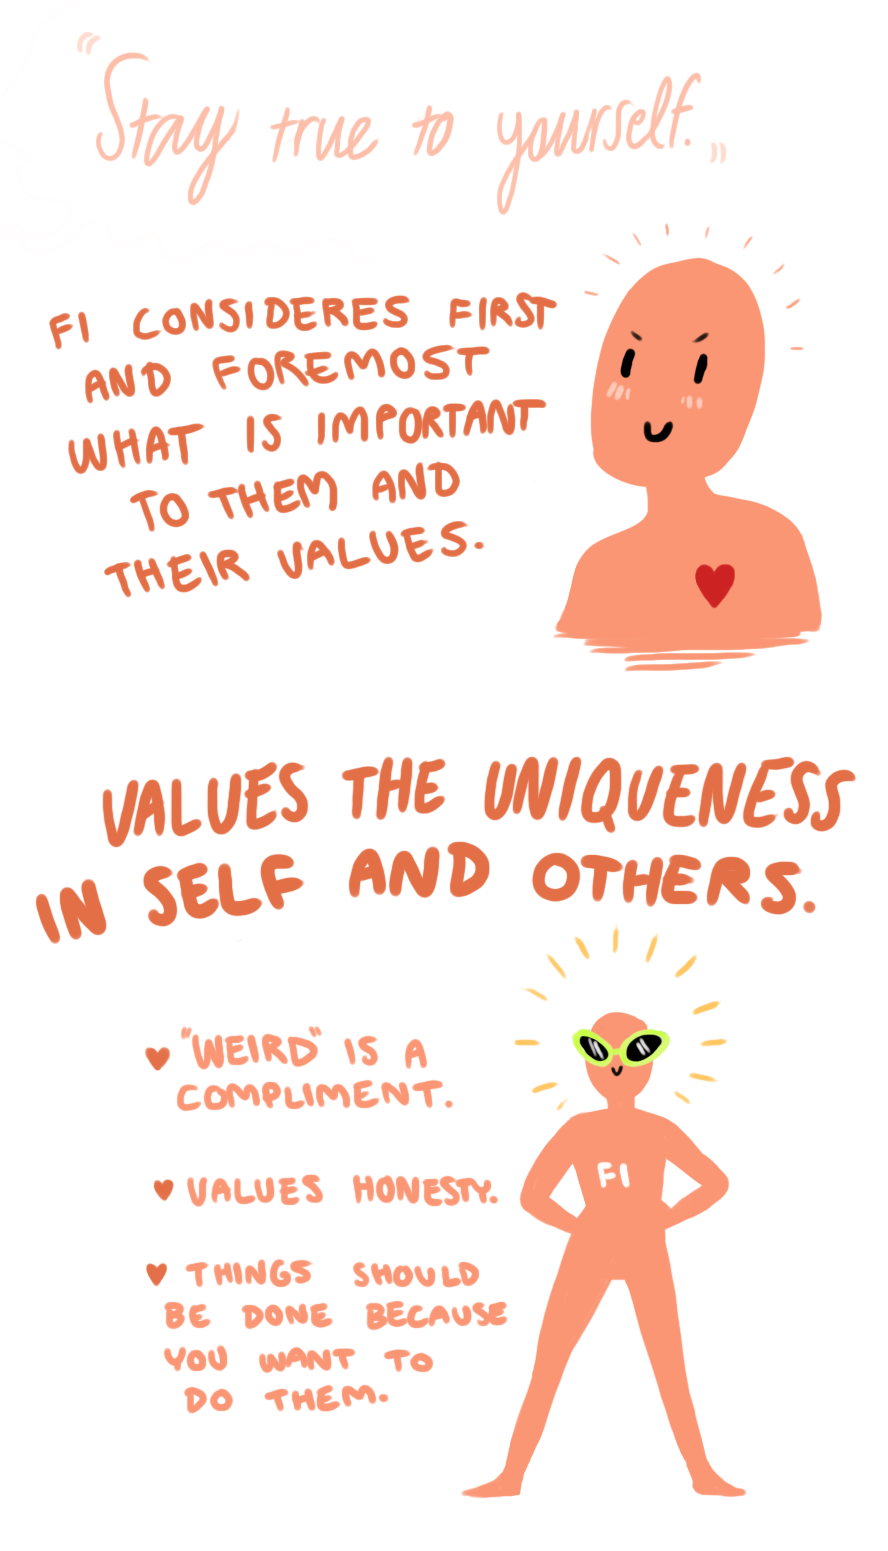 "Stay true to yourself."
FI CONSIDERES FIRST
AND FOREMOST
WHAT IS IMPORTANT
TO THEM AND
THEIR VALUES.
VALUES THE UNIQUENESS
IN SELF AND OTHERS.
"WEIRD" IS A
COMPLIMENT.
VALUES HONESTY.
THINGS SHOULD
BE DONE BECAUSE
YOU WANT TO
DO THEM.
FI